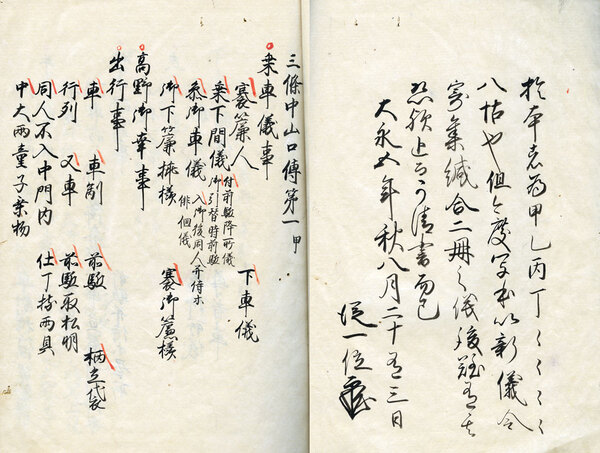 於本者為甲乙丙丁〻〻〻〻
八帖也但今度写本以新儀令
寄集緘合二冊之儀後難在其
恐欤上可清書而已
大永五年秋八月二十三日
従一位
三條中山口傳第一甲
乗車儀事
褰簾人 下車儀
乗下間儀 付前駈降所儀 御引替時前駈
乗御車儀 入御後同人可待
徘徊儀
御下簾様 褰御簾様
高野御幸事
出行事
車 車副 前駈 柄立袋
行列 又車 前駈取松明
同人不入中門内 仕丁持雨具
中大両童子乗物